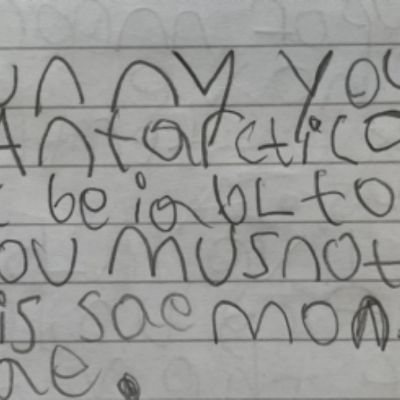 unny you
Antarctica
be inabL to
ou musnot
is sae mon
ae.